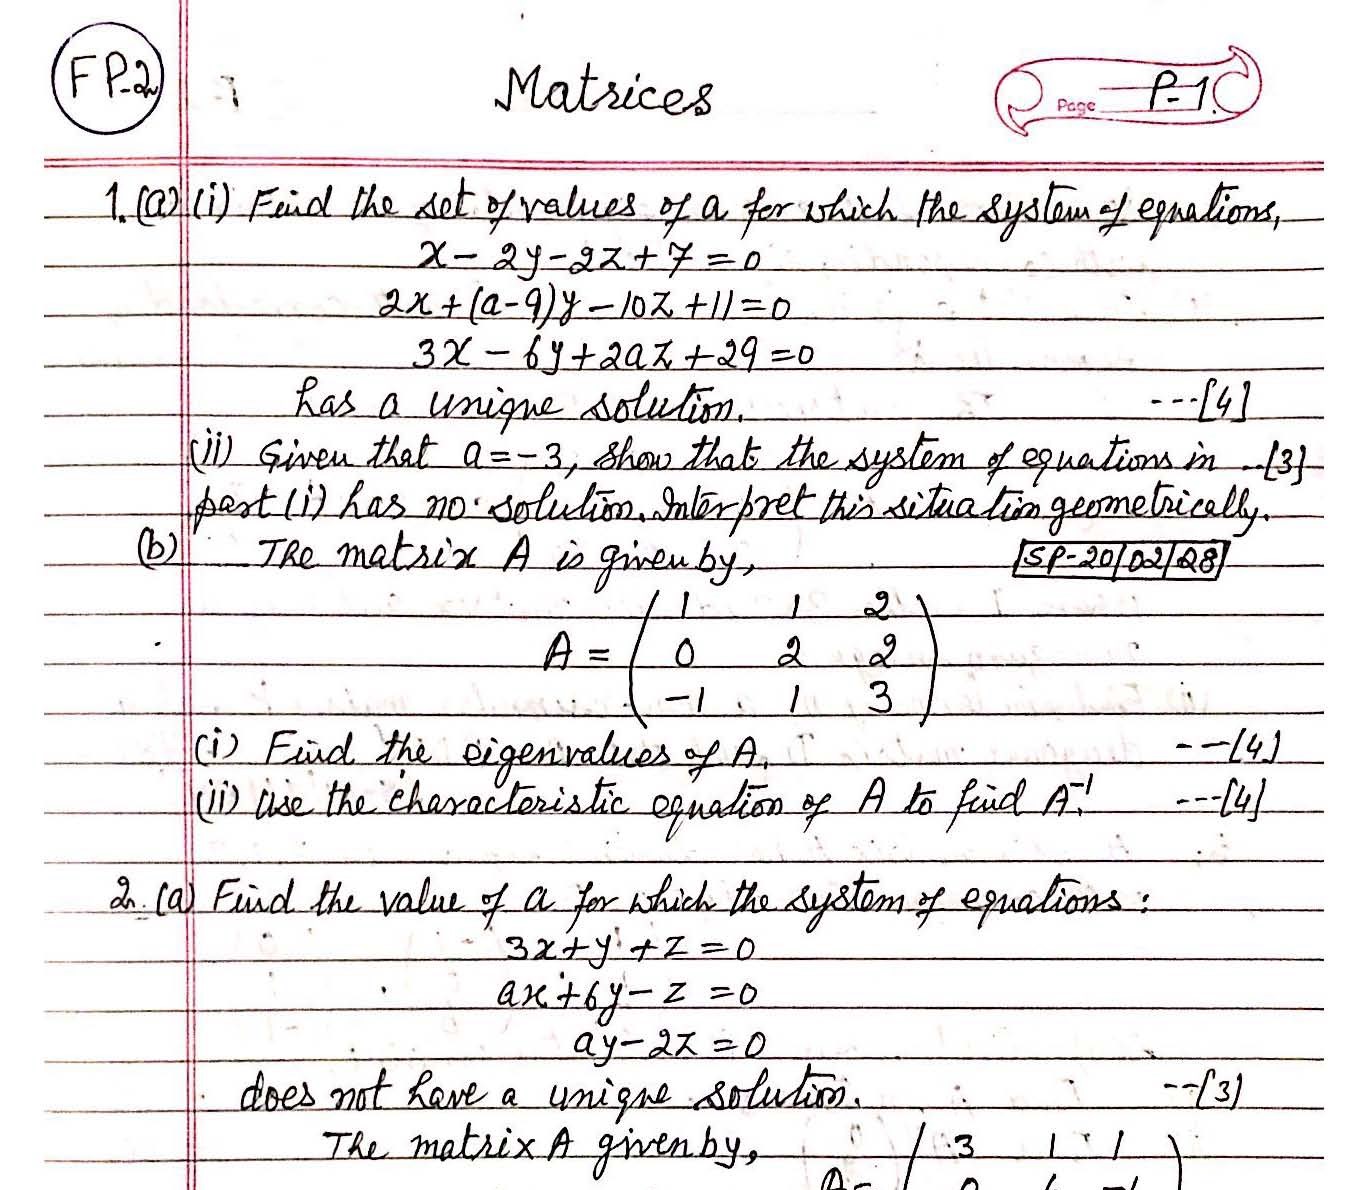 FP-2
Matrices
Page P-1.
1. (a) (i) Find the set of values of a for which the system of equations,
x - 2y - 2z + 7 = 0
2x + (a-9)y - 10z + 11 = 0
3x - 6y + 2az + 29 = 0
has a unique solution. ---[4]
(ii) Given that a = -3, show that the system of equations in --[3]
part (i) has no solution. Interpret this situation geometrically.
(b) The matrix A is given by, SP-20/02/Q8
1 1 2
A = 0 2 2
-1 1 3
(i) Find the eigenvalues of A. ---[4]
(ii) Use the characteristic equation of A to find A⁻¹. ---[4]
2. (a) Find the value of a for which the system of equations :
3x + y + z = 0
ax + 6y - z = 0
ay - 2z = 0
does not have a unique solution. ---[3]
The matrix A given by, 3 1 1
A =